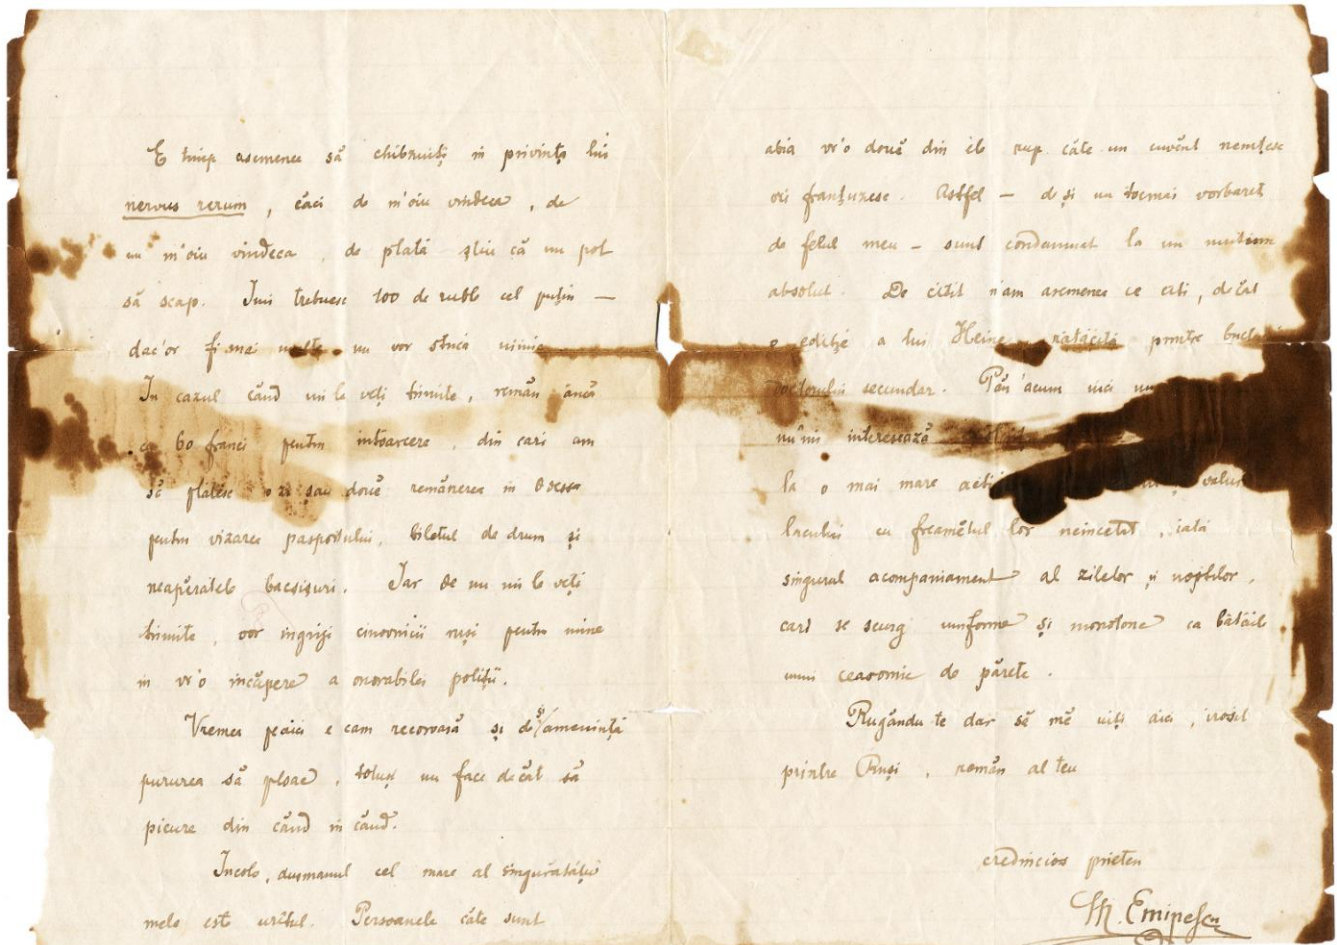 E timp asemenea să chibzuiți in privința lui
nervus rerum, căci de m'oiu vindeca, de
nu m'oiu vindeca, de plată știu că nu pot
să scap. Imi trebuesc 100 de ruble cel puțin —
dac'or fi mai multe nu vor strica nimic
In cazul când mi le veți trimite, remân încă
cu 60 franci pentru intoarcere, din cari am
să plătesc o zi sau doue remânerea in Odessa
pentru vizarea pasportului, biletul de drum și
neapĕratele bacsișuri. Iar de nu mi le veți
trimite, vor ingriji cinovnicii ruși pentru mine
in vr'o incăpere a onorabilei poliții.
Vremea pe aici e cam recoroasă și deși amenință
pururea să ploae, totuși nu face decât să
picure din când in când.
Incolo, dușmanul cel mare al singurătății
mele est urîtul. Persoanele câte sunt
abia vr'o douĕ din ele rup câte un cuvĕnt nemțesc
ori franțuzesc. Astfel — deși nu tocmai vorbareț
de felul meu — sunt condamnat la un mutism
absolut. De citit n'am asemenea ce citi, decât
o ediție a lui Heine rătăcită printre
doctorului secundar. Păn'acum nici
nu'mi interesează
la o mai mare
lacului cu freamĕtul lor neincetat, iată
singurul acompaniament al zilelor și nopților,
cari se scurg uniforme și monotone ca bătăile
unui ceasornic de părete.
Rugându-te dar să nu mĕ uiți aici, irosit
printre Ruși, remân al teu
credincios prieten
M. Eminescu